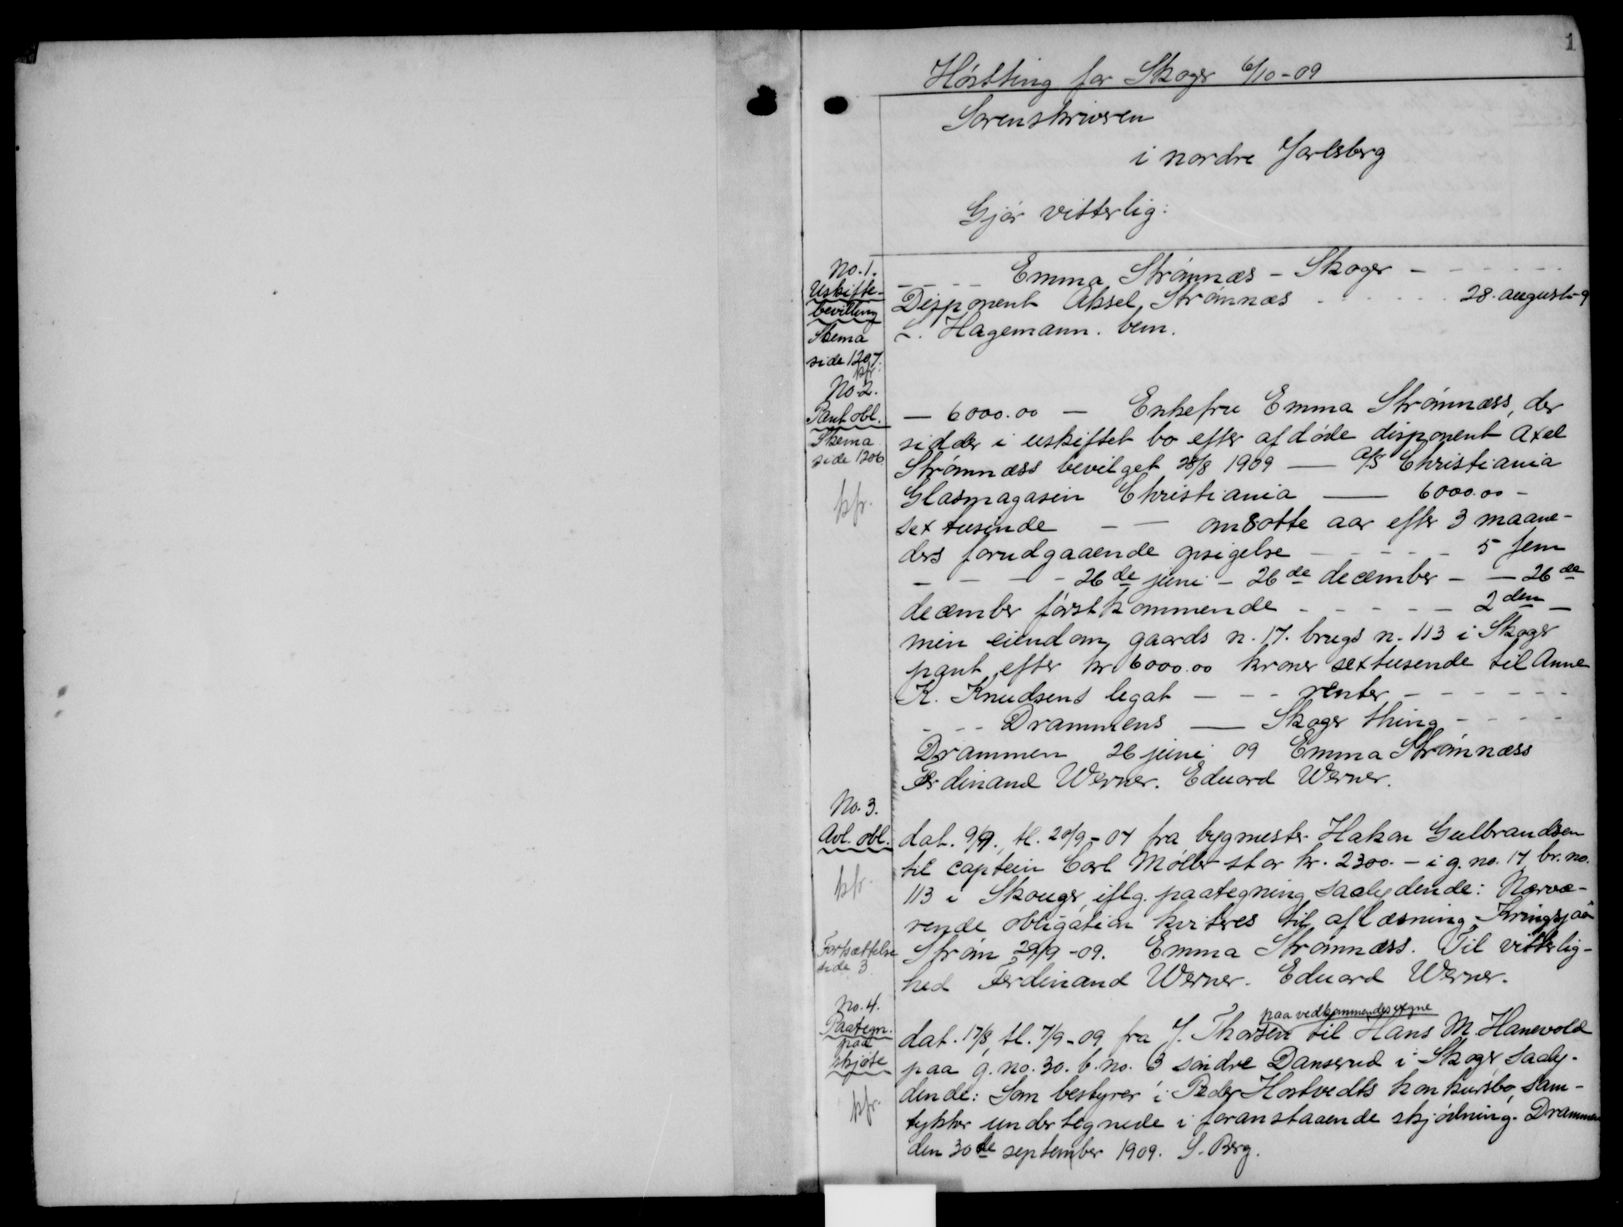 1
Høstting for Skoger 6/10-09
Sorenskriveren
i nordre Jarlsberg
Gjør vitterlig:
No. 1.
Uskifte-
bevilling
Skema
side 1297.
kfr.
- - - - Emma Strømnæs - Skoger - - - - - -
Disponent Aksel Strømnæs - - - - - - 28. august-9
L. Hagemann. bem.
No. 2.
Pant.obl.
Skema
side 1206
kfr.
— 6000.00 — Enkefru Emma Strømnæss, der
sidder i uskiftet bo efter afdøde disponent Axel
Strømnæss bevilget 28/8 1909 — A/S Christiania
Glasmagasin Christiania — 6000.00 -
sextusinde - — om 8 otte aar efter 3 maane-
ders forudgaaende opsigelse - - - - - 5 fem
- - - - 26de juni - 26de december - — 26de
december førstkommende - - - - - 2den —
min eiendom gaards n. 17. brugs n. 113 i Skoger
pant efter kr 6000.00 kroner sextusende til Anne
K. Knudsens legat - - - renter - - - - - -
- - - Drammens — Skoger thing - - - -
Drammen 26 juni 09 Emma Strømnæss
Ferdinand Werner. Eduard Werner.
No. 3.
Avl. obl.
kfr.
dat. 9/9, tl. 20/9-07 fra bygmester Hakon Gulbrandsen
til captein Carl Møller stor kr. 2300. - i g. no. 17 br. no.
113 i Skouger, iflg. paategning saalydende: Nærvæ-
rende obligation kviteres til aflæsning. Kringsjaa
Fortsættelse
side 3
Strøm 29/9-09. Emma Strømnæss. Til vitterlig-
hed Ferdinand Werner. Eduard Werner.
No. 4.
Paategn.
paa
skjøte
kfr.
paa vedkommendes vegne
dat. 17/8, tl. 7/9-09 fra J. Thorsen til Hans M. Hanevold
paa g. no. 30. b. no. 3 søndre Danserud i Skoger saaly-
dende: Som bestyrer i Peder Hortvedts konkursbo, sam-
tykker undertegnede i foranstaaende skjødning. Drammen
den 30te september 1909. S. Berg.